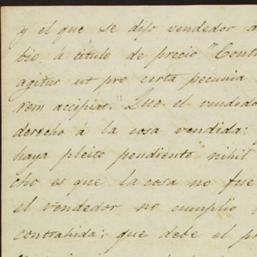 y el que se dijo vendedor a
bio á titulo de precio "Cont
agitur ut pro certa pecunia
rem accipiat." Que el vendedo
derecho á la cosa vendida:
haya pleito pendiente "nihil
cho es que la cosa no fue
el vendedor no cumplio
contrahida; que debe el p